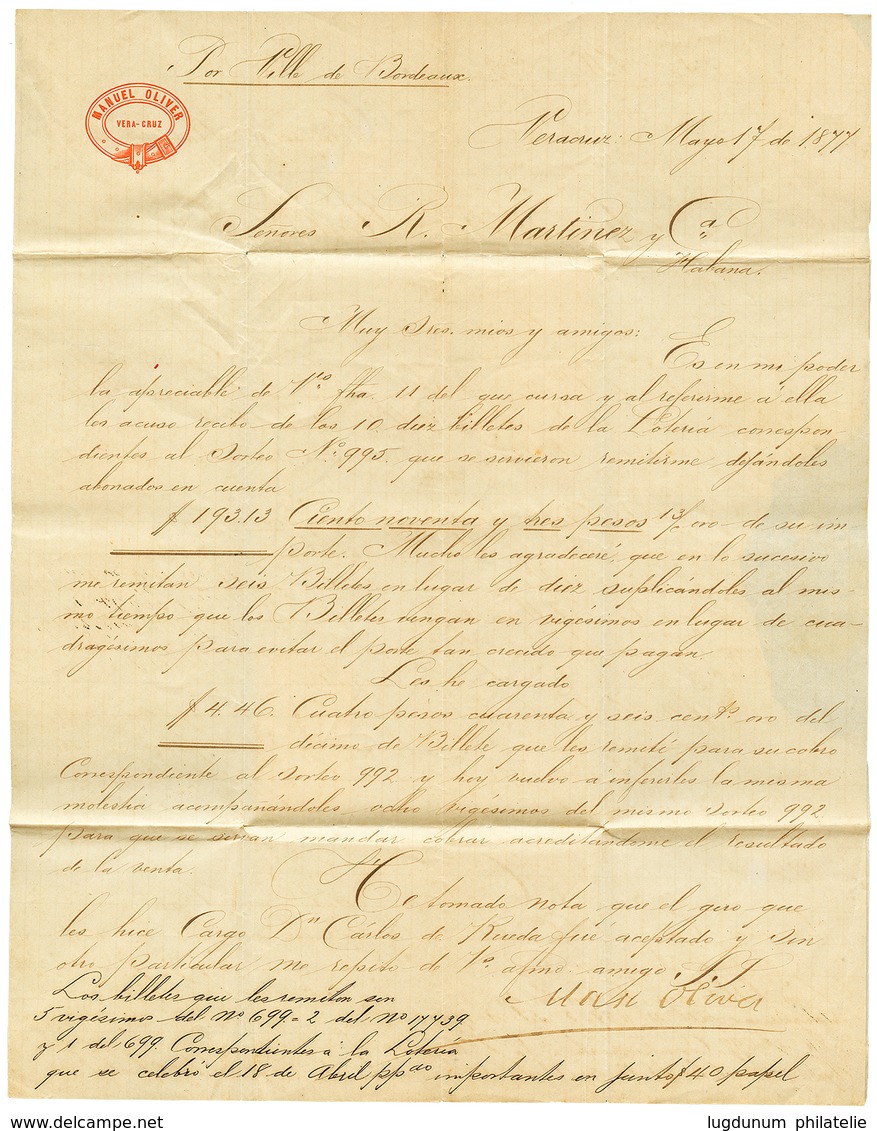 Por Ville de Bordeaux.
MANUEL OLIVER
VERA-CRUZ
Veracruz: Mayo 17 de 1877
Señores R. Martinez y Cª
Habana.
Muy Sres. mios y amigos:
Es en mi poder
la apreciable de Vs. fha. 11 del que cursa y al referirme á ella
les acuso recibo de los 10 diez billetes de la Loteriá correspon-
dientes al Sorteo Nº 995. que se sirvieron remitirme dejándoles
abonados en cuenta
$ 193.13 Ciento noventa y tres pesos 13/ oro de su im-
porte. Mucho les agradeceré que en lo sucesivo
me remitan seis Billetes en lugar de diez suplicándoles al mis-
mo tiempo que los Billetes vengan en vigésimos en lugar de cua-
dragésimos para evitar el porte tan crecido que pagan.
Les he cargado
$ 4.46. Cuatro pesos cuarenta y seis cents. oro del
décimo de Billete que les remití para su cobro
Correspondiente al Sorteo 992 y hoy vuelvo á inferirles la misma
molestia acompañándoles ocho vigésimos del mismo Sorteo 992
para que se sirvan mandar cobrar acreditandome el resultado
de la venta.
He tomado nota que el giro que
les hice Cargo Dn Cárlos de Rueda fué aceptado y sin
otro particular me repito de Vs. afmo. amigo
Man Oliver
Los billetes que les remiton son
5 vigésimos del Nº 699 = 2 del Nº 17739
y 1 del 699. Correspondientes á la Loteria
que se celebró el 18 de Abril ppdo importantes en junto $40 papel
lugdunum philatelie